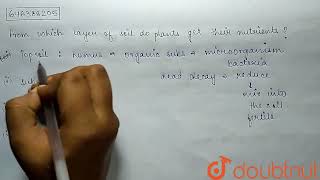 644388205
from which layer of soil do plants get their nutrients?
Top soil : humus → organic subs + microorganism
bacteria
dead decay → reduce
mix into
the soil
fertile
doubtnut